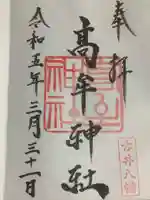 奉拝
古井八幡
高牟神社
令和五年三月三十一日